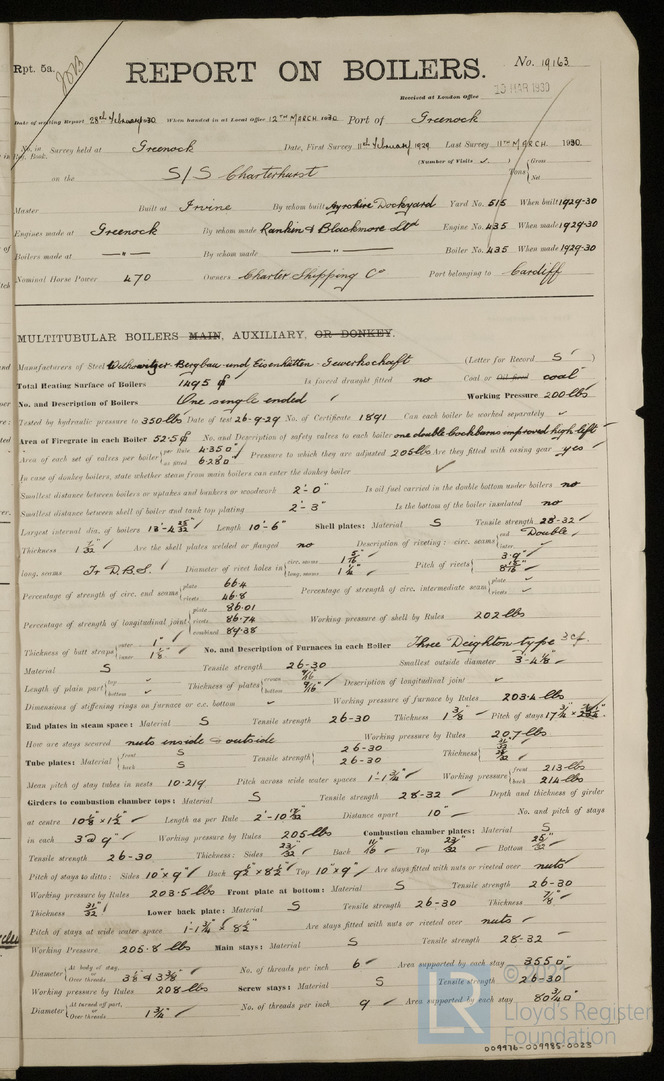 Rpt. 5a.
REPORT ON BOILERS.
No. 19163
Received at London Office
20 MAR 1930
Date of writing Report 28th February 1930 When handed in at Local Office 12TH MARCH 1930 Port of Greenock
No. in Survey held at Greenock Date, First Survey 11th February 1929 Last Survey 11TH MARCH 1930.
Reg. Book. (Number of Visits ✓ )
on the S/S Charterhurst Tons { Gross Net
Master Built at Irvine By whom built Ayrshire Dockyard Yard No. 515 When built 1929-30
Engines made at Greenock By whom made Rankin & Blackmore Ltd Engine No. 435 When made 1929-30
Boilers made at — " — By whom made — " — Boiler No. 435 When made 1929-30
Nominal Horse Power 470 Owners Charter Shipping Co Port belonging to Cardiff
MULTITUBULAR BOILERS MAIN, AUXILIARY, OR DONKEY.
Manufacturers of Steel Bergbau und Eisenhütten-Gewerkschaft (Letter for Record S )
Total Heating Surface of Boilers 1495 ▯ Is forced draught fitted no Coal or Oil fired coal
No. and Description of Boilers One single ended Working Pressure 200 lbs
Tested by hydraulic pressure to 350 lbs Date of test 26-9-29 No. of Certificate 1891 Can each boiler be worked separately ✓
Area of Firegrate in each Boiler 52.5 ▯ No. and Description of safety valves to each boiler one double Cockburns improved high lift
Area of each set of valves per boiler { per Rule 4.35 ▯ as fitted 6.28 ▯ Pressure to which they are adjusted 205 lbs Are they fitted with easing gear yes
In case of donkey boilers, state whether steam from main boilers can enter the donkey boiler ✓
Smallest distance between boilers or uptakes and bunkers or woodwork 2'-0" Is oil fuel carried in the double bottom under boilers no
Smallest distance between shell of boiler and tank top plating 2'-3" Is the bottom of the boiler insulated no
Largest internal dia. of boilers 13'-4 25/32 Length 10'-6" Shell plates: Material S Tensile strength 28-32
Thickness 1 1/32 Are the shell plates welded or flanged no Description of riveting: circ. seams { end Double inter. ✓
long. seams Tr D.B.S. Diameter of rivet holes in { circ. seams 1 5/16" long. seams 1 1/4" Pitch of rivets { 3.9" 8 15/16"
Percentage of strength of circ. end seams { plate 66.4 rivets 46.8 Percentage of strength of circ. intermediate seam { plate ✓ rivets ✓
Percentage of strength of longitudinal joint { plate 86.01 rivets 86.74 combined 89.38 Working pressure of shell by Rules 202 lbs
Thickness of butt straps { outer 1" inner 1 1/8" No. and Description of Furnaces in each Boiler Three Deighton type 3 cf.
Material S Tensile strength 26-30 Smallest outside diameter 3'-4 1/8"
Length of plain part { top ✓ bottom ✓ Thickness of plates { crown 9/16" bottom 9/16" Description of longitudinal joint ✓
Dimensions of stiffening rings on furnace or c.c. bottom ✓ Working pressure of furnace by Rules 203.4 lbs
End plates in steam space: Material S Tensile strength 26-30 Thickness 1 3/8" Pitch of stays 17 3/4" ×
How are stays secured nuts inside & outside Working pressure by Rules 207 lbs
Tube plates: Material { front S back S Tensile strength { 26-30 26-30 Thickness { 31/32" 25/32"
Mean pitch of stay tubes in nests 10.219 Pitch across wide water spaces 1'-1 3/4" Working pressure { front 213 lbs back 214 lbs
Girders to combustion chamber tops: Material S Tensile strength 28-32 Depth and thickness of girder
at centre 10 1/8" × 1 1/2" Length as per Rule 2'-10 17/32" Distance apart 10" No. and pitch of stays
in each 3 @ 9" Working pressure by Rules 205 lbs Combustion chamber plates: Material S
Tensile strength 26-30 Thickness: Sides 23/32" Back 11/16" Top 23/32" Bottom 25/32"
Pitch of stays to ditto: Sides 10"×9" Back 9 1/2"×8 1/2" Top 10"×9" Are stays fitted with nuts or riveted over nuts
Working pressure by Rules 203.5 lbs Front plate at bottom: Material S Tensile strength 26-30
Thickness 31/32" Lower back plate: Material S Tensile strength 26-30 Thickness 7/8"
Pitch of stays at wide water space 1'-1 3/4" × 8 1/2" Are stays fitted with nuts or riveted over nuts
Working Pressure 205.8 lbs Main stays: Material S Tensile strength 28-32
Diameter { At body of stay, or Over threads 3 1/8" & 3 3/8" No. of threads per inch 6 Area supported by each stay 355 ▯"
Working pressure by Rules 208 lbs Screw stays: Material S Tensile strength 26-30
Diameter { At turned off part, or Over threads 1 3/4" No. of threads per inch 9 Area supported by each stay 80 3/4 ▯"
LR
© 2021
Lloyd's Register
Foundation
009976-009985-0023